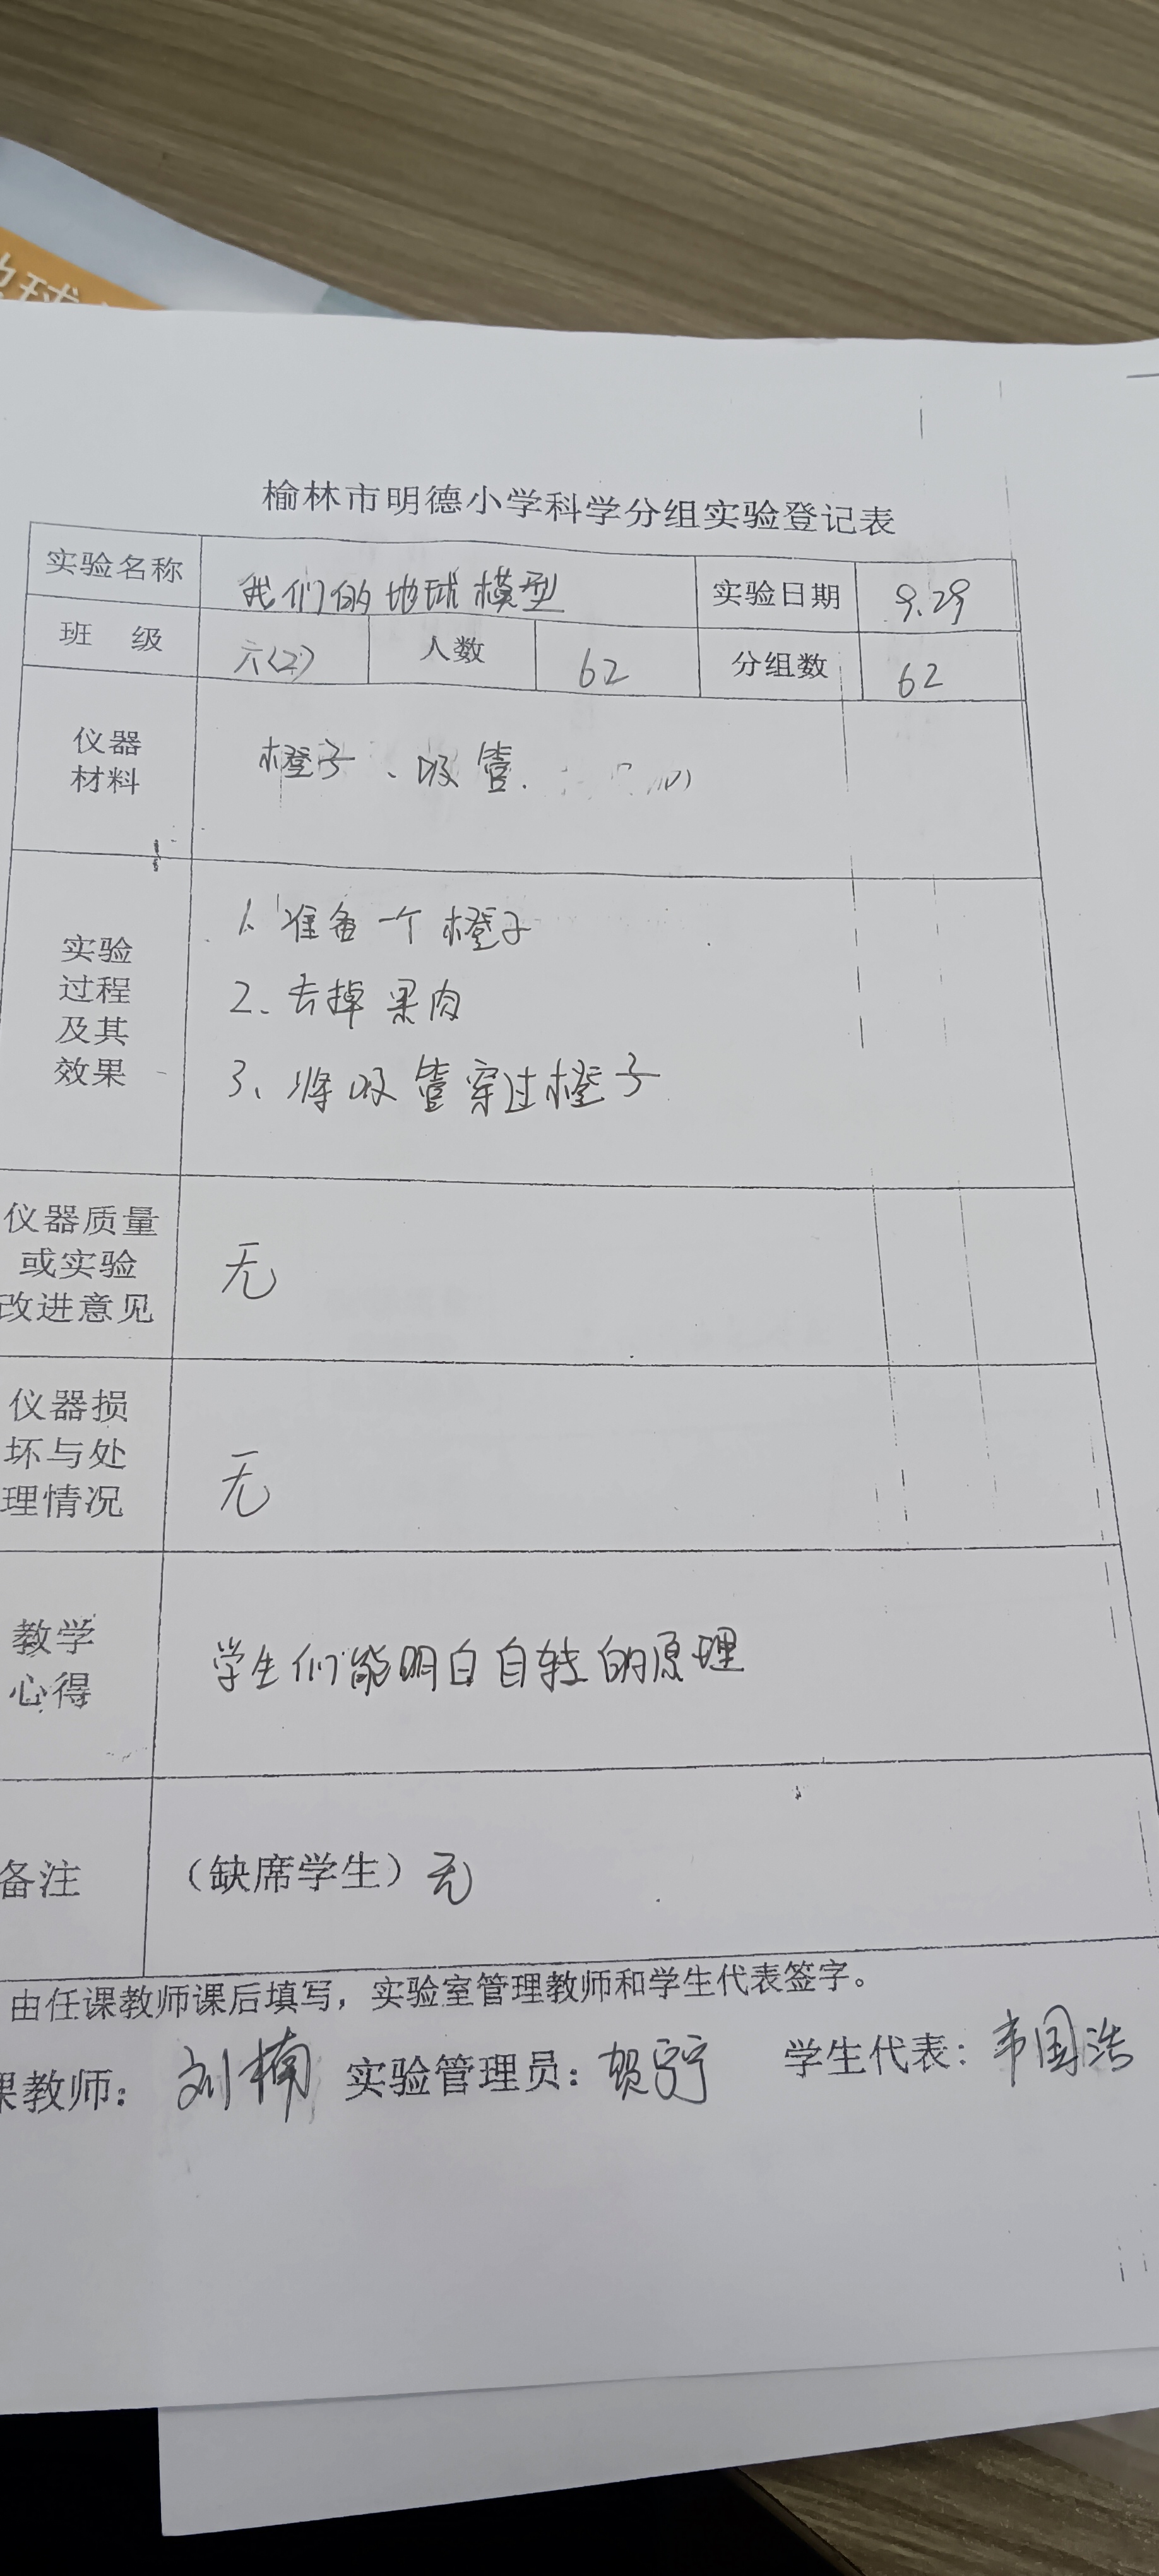 球
榆林市明德小学科学分组实验登记表
实验名称 我们的地球模型 实验日期 9.29
班 级 六(2) 人数 62 分组数 62
仪器
材料
橙子、吸管.
实验
过程
及其
效果
1. 准备一个橙子
2. 去掉果肉
3、将吸管穿过橙子
仪器质量
或实验
改进意见
无
仪器损
坏与处
理情况
无
教学
心得
学生们能明白自转的原理
备注 (缺席学生)无
由任课教师课后填写，实验室管理教师和学生代表签字。
课教师: 刘楠 实验管理员: 贺宁 学生代表: 韦国浩